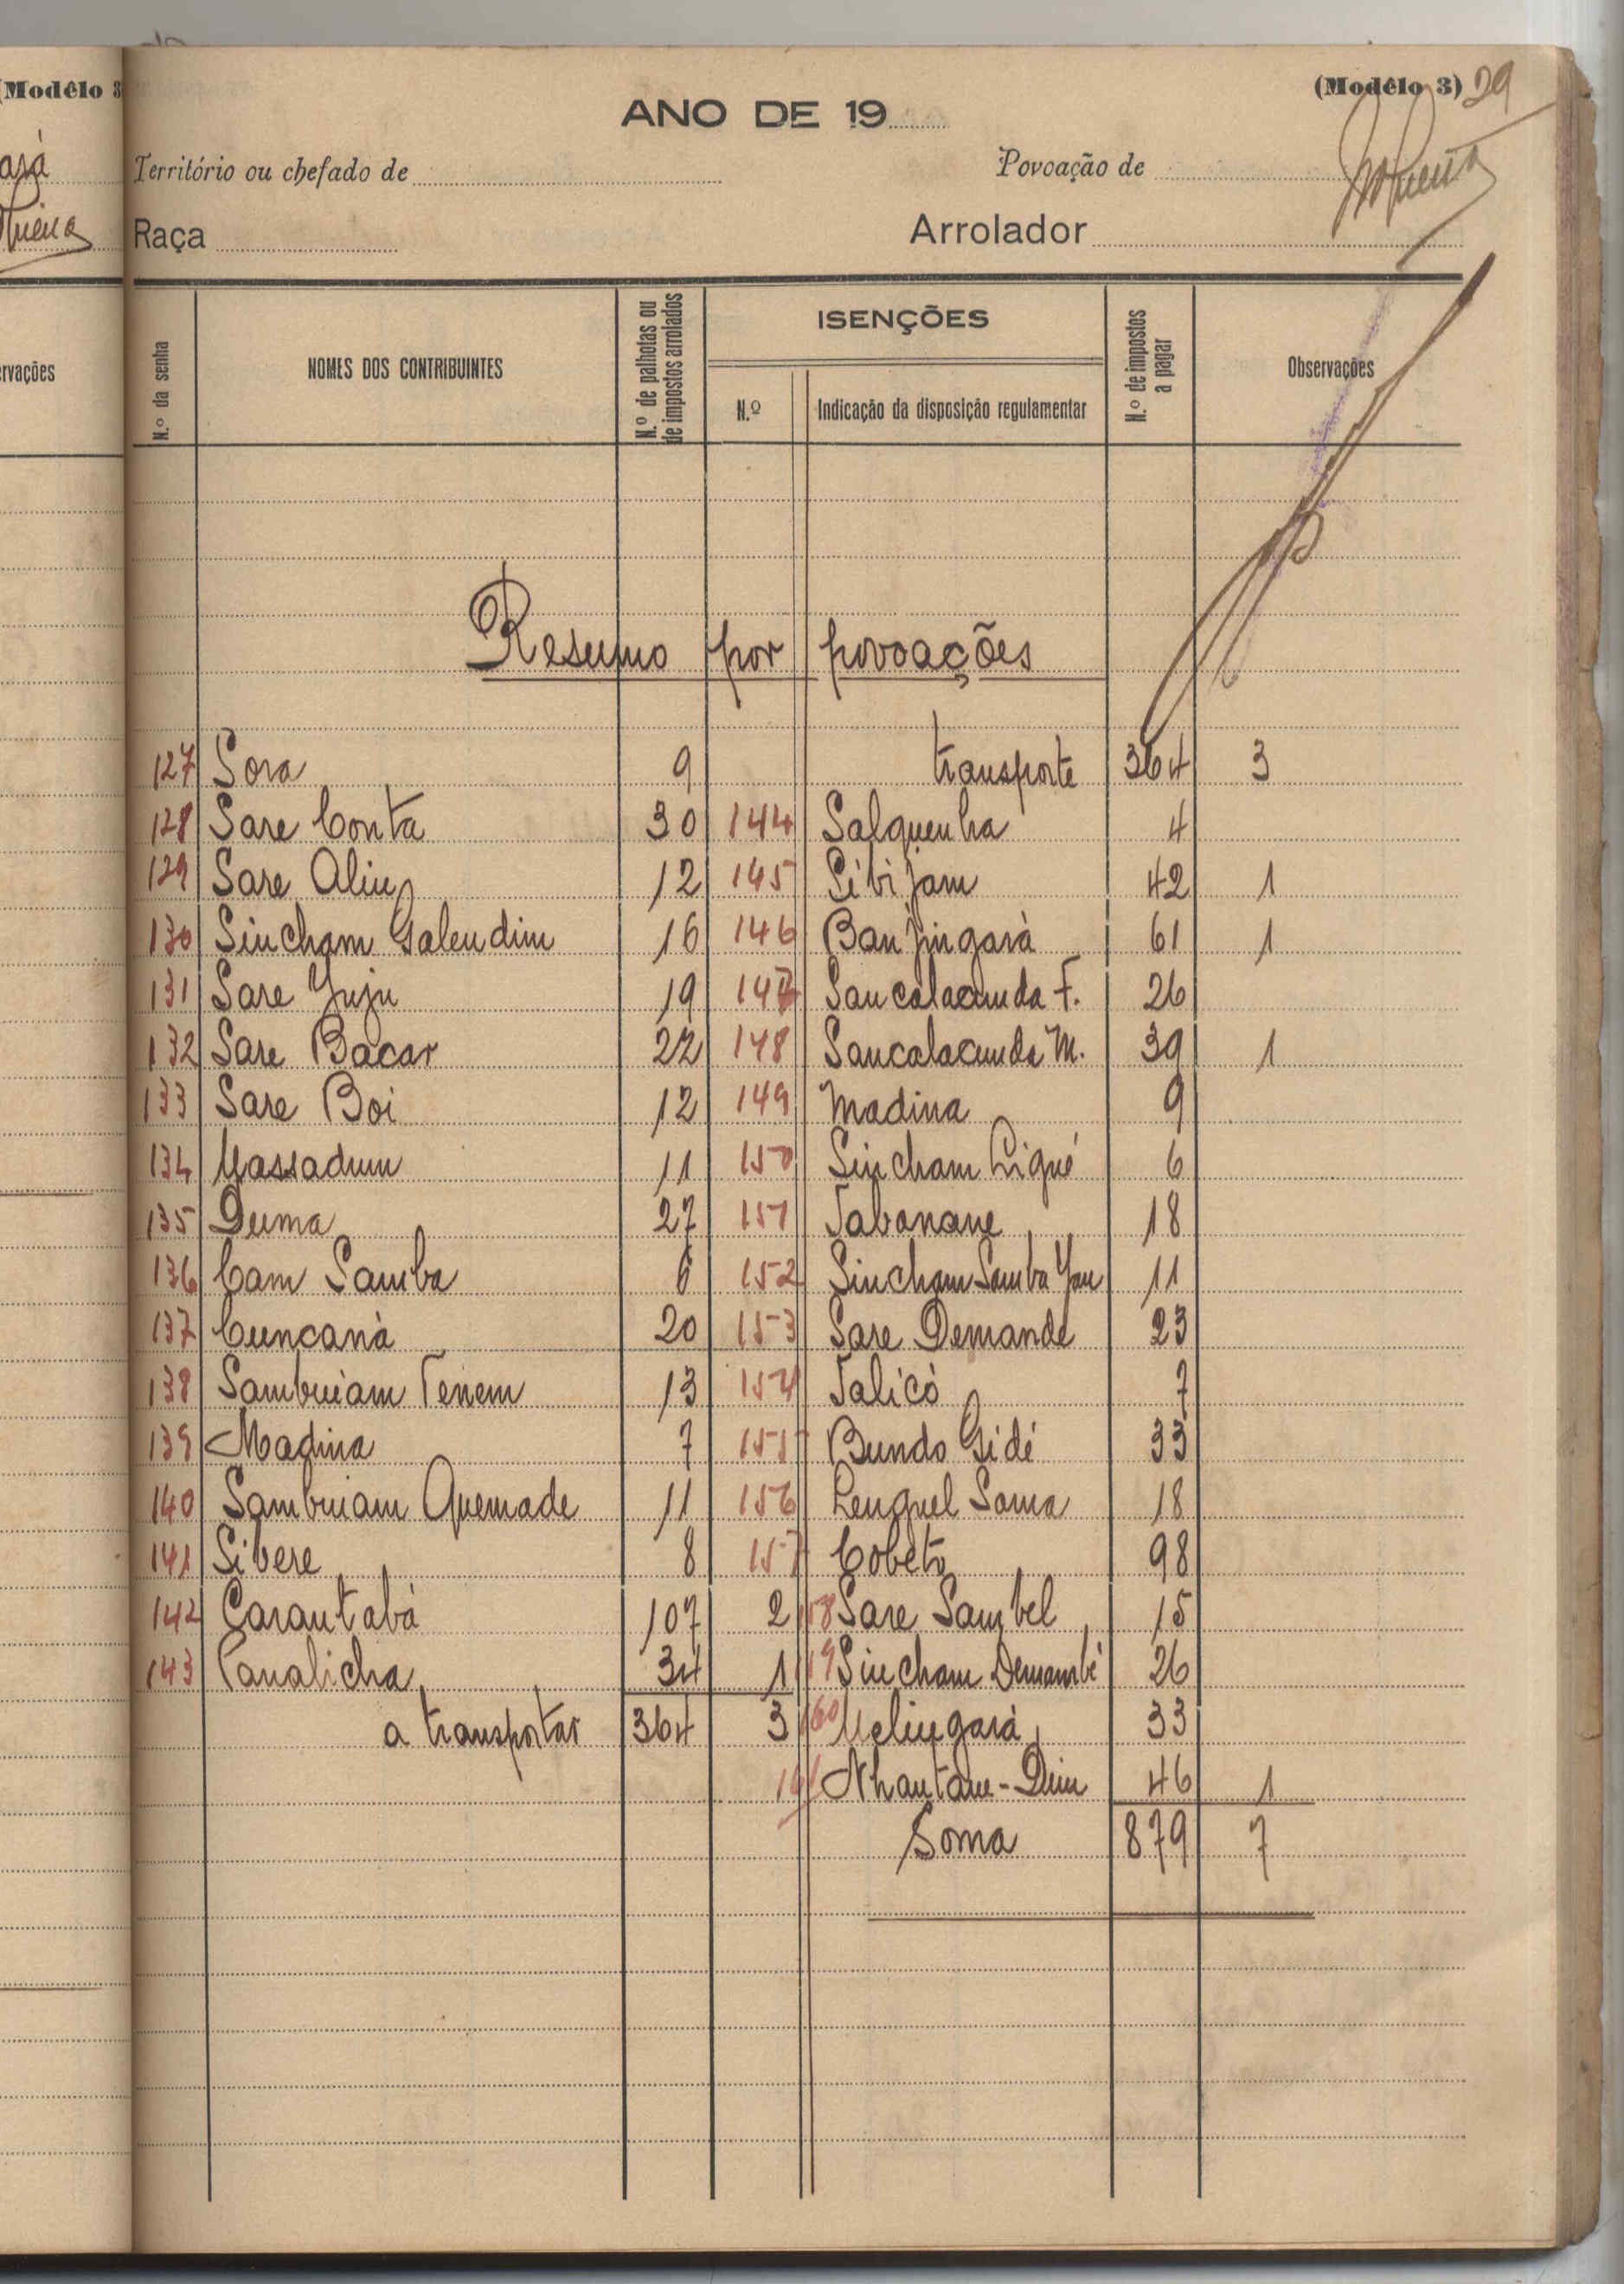 (Modêlo 3
(Modêlo 3) 29
ANO DE 19
Território ou chefado de
Povoação de
Raça
Arrolador
rvações
N.º da senha
NOMES DOS CONTRIBUINTES
N.º de palhotas ou de impostos arrolados
ISENÇÕES
N.º
Indicação da disposição regulamentar
N.º de impostos a pagar
Observações
Resumo por povoações
127 Sora 9 transporte 364 3
128 Sare Conta 30 144 Salquenha 4
129 Sare Aliu 12 145 Sibijam 42 1
130 Sincham Galendim 16 146 Banjingará 61 1
131 Sare Juju 19 147 Sancalacunda F. 26
132 Sare Bacar 22 148 Sancalacunda M. 39 1
133 Sare Boi 12 149 Madina 9
134 Massadum 11 150 Sincham Liqué 6
135 Duma 27 151 Tabanane 18
136 Cam Samba 6 152 Sincham Samba Yau 11
137 Cuncanà 20 153 Sare Demande 23
138 Sambuiam Tenem 13 154 Talicó 7
139 Madina 7 155 Bundo Gidé 33
140 Sambuiam Quemade 11 156 Lenquel Soma 18
141 Sibere 8 157 Cobeto 98
142 Carantabà 107 2 158 Sare Sambel 15
143 Canalicha 34 1 159 Sincham Demambé 26
a transportar 364 3 160 Melingará 33
161 Nhantam-Dim 46 1
Soma 879 7